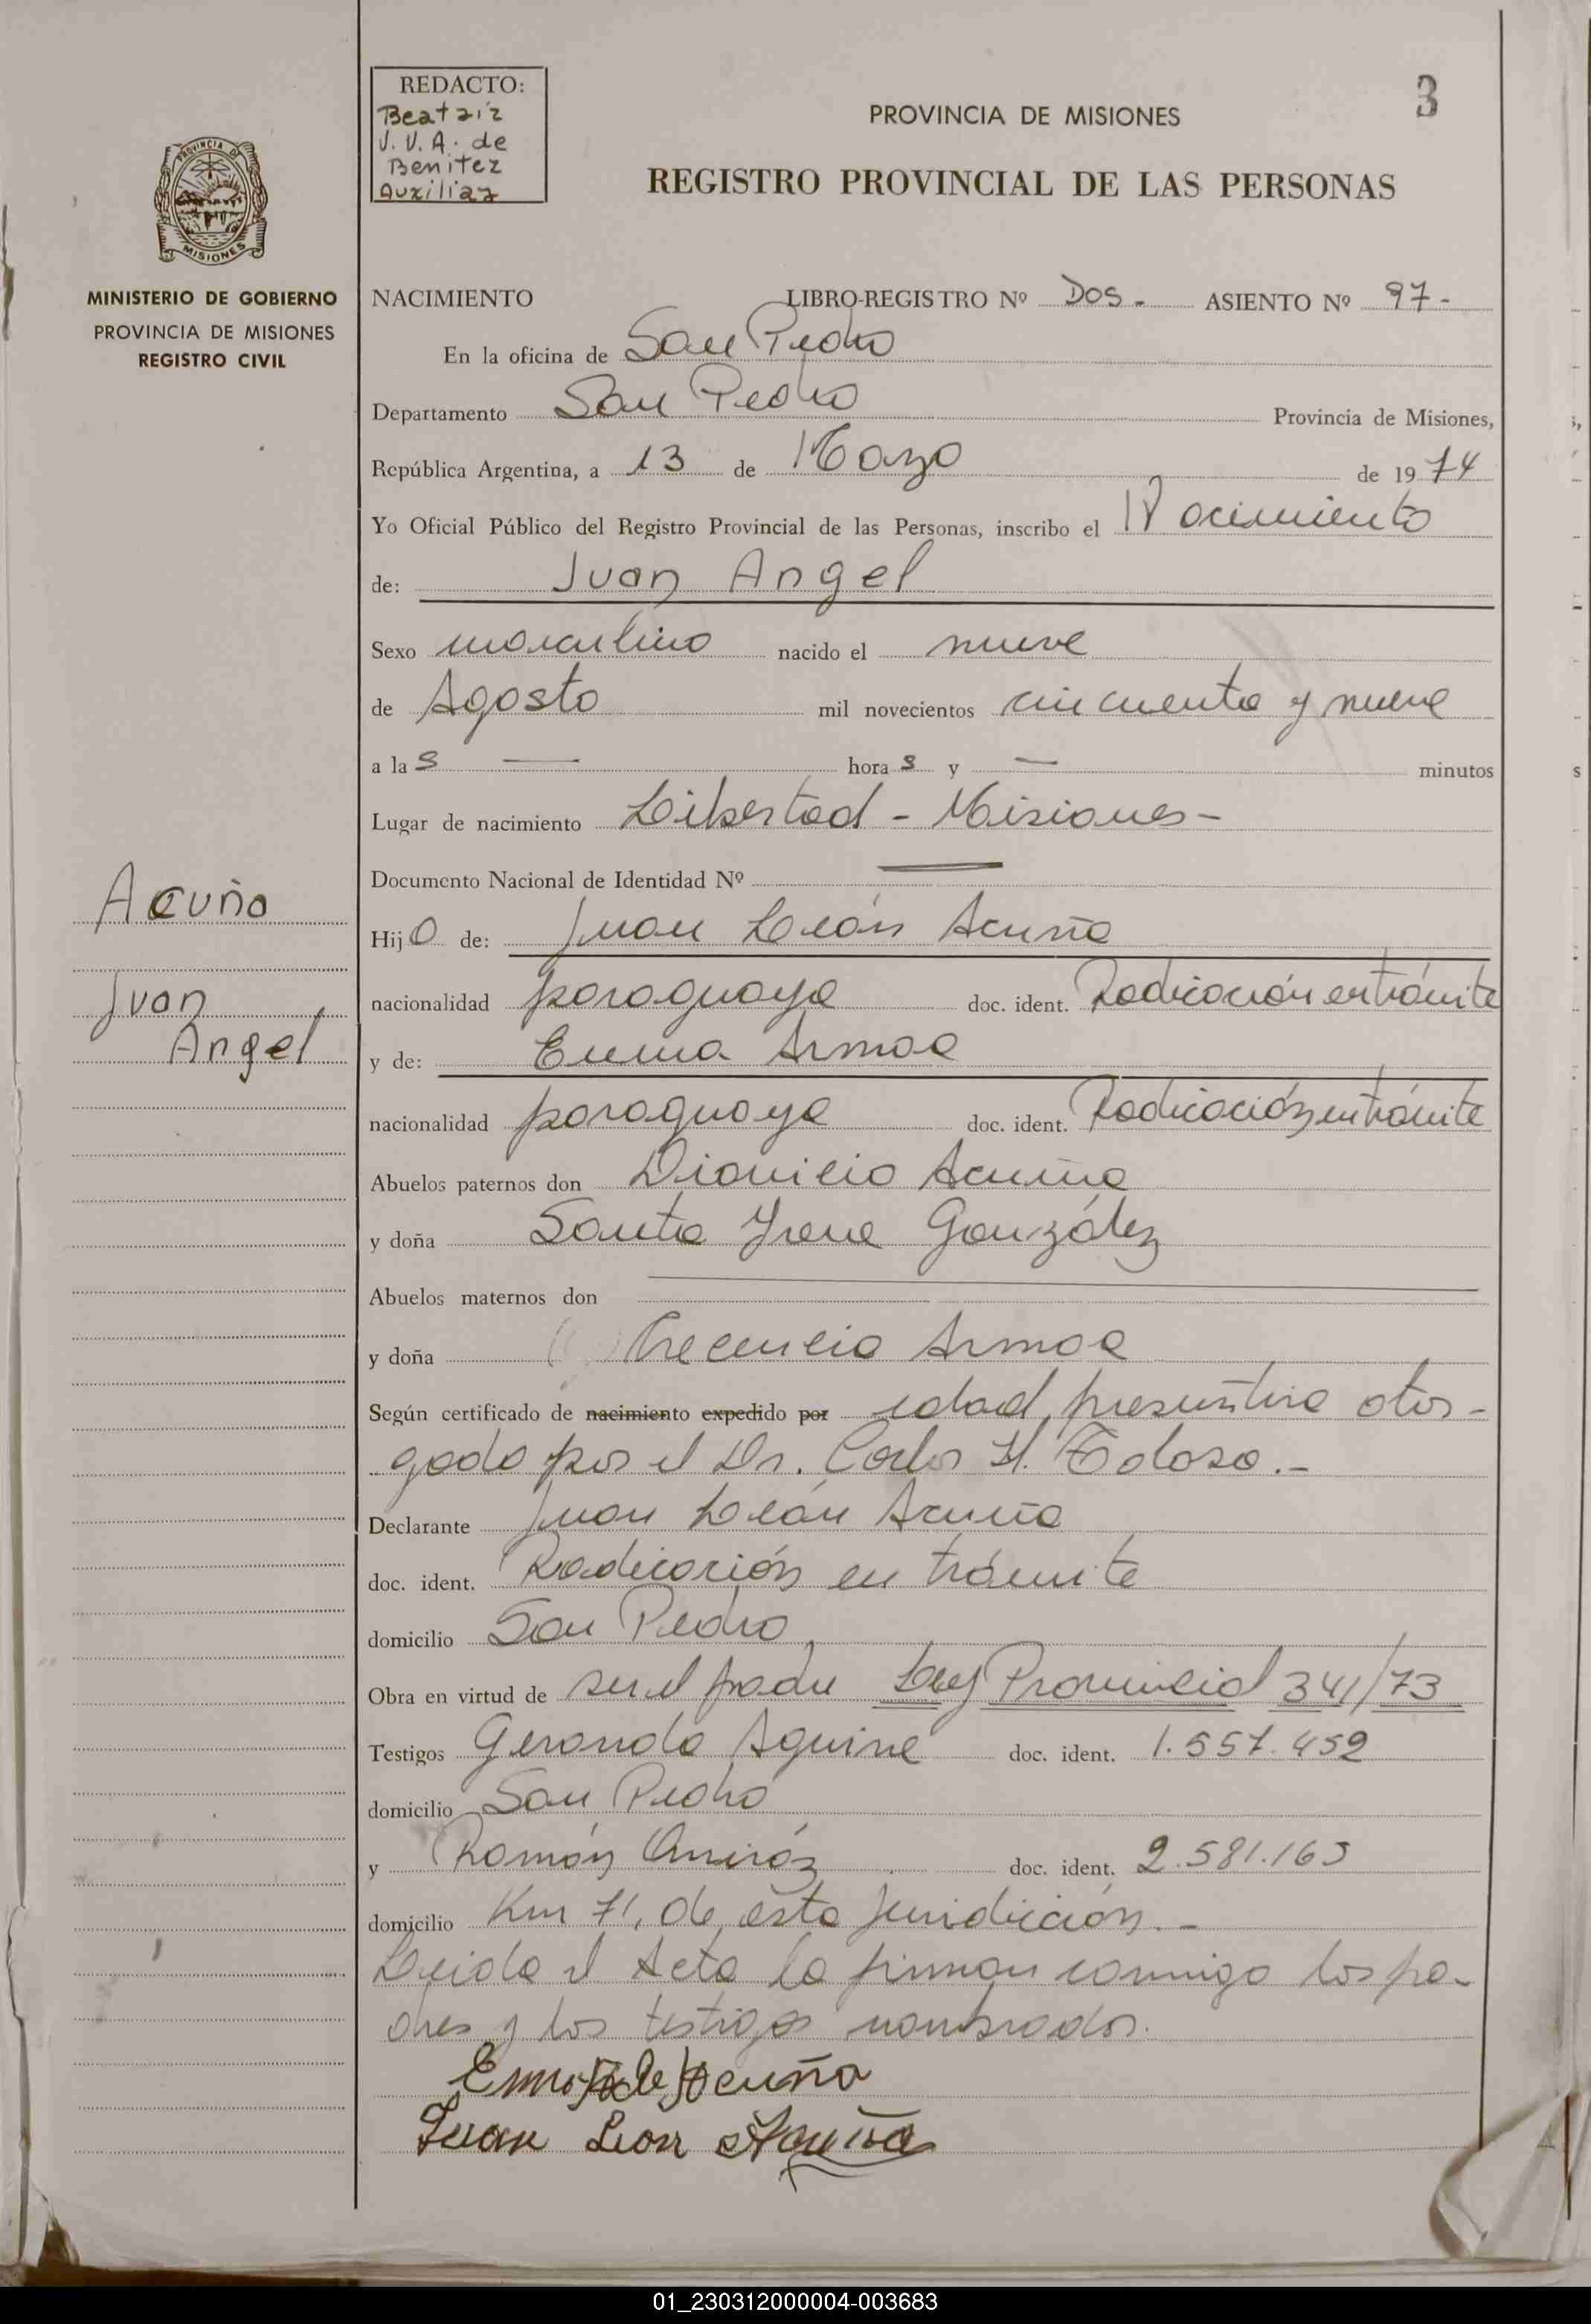 REDACTO:
Beatriz
J. V. A. de
Benitez
Auxiliar
3
PROVINCIA DE MISIONES
REGISTRO PROVINCIAL DE LAS PERSONAS
PROVINCIA DE
MISIONES
MINISTERIO DE GOBIERNO
PROVINCIA DE MISIONES
REGISTRO CIVIL
NACIMIENTO LIBRO-REGISTRO Nº Dos - ASIENTO Nº 97 -
En la oficina de San Pedro
Departamento San Pedro Provincia de Misiones,
República Argentina, a 13 de Mayo de 1974
Yo Oficial Público del Registro Provincial de las Personas, inscribo el Nacimiento
de: Juan Angel
Sexo masculino nacido el nueve
de Agosto mil novecientos cincuenta y nueve
a las — horas y — minutos
Lugar de nacimiento Libertad - Misiones -
Documento Nacional de Identidad Nº —
Acuña
Juan
Angel
Hijo de: Juan León Acuña
nacionalidad paraguaya doc. ident. Radicación en trámite
y de: Emma Armoa
nacionalidad paraguaya doc. ident. Radicación en trámite
Abuelos paternos don Dionicio Acuña
y doña Santa Irene González
Abuelos maternos don —
y doña Crecencia Armoa
Según certificado de nacimiento expedido por edad presuntiva otor-
gado por el Dr. Carlos H. Tolosa.-
Declarante Juan León Acuña
doc. ident. Radicación en trámite
domicilio San Pedro
Obra en virtud de ser el padre Ley Provincial 341/73
Testigos Gerardo Aguirre doc. ident. 1.557.459
domicilio San Pedro
y Ramón doc. ident. 2.581.163
domicilio Km 71, de ésta juridición.-
Leida el Acta la firman conmigo los pa-
dres y los testigos nombrados.
de Acuña
Juan Leon Acuña
01_230312000004-003683